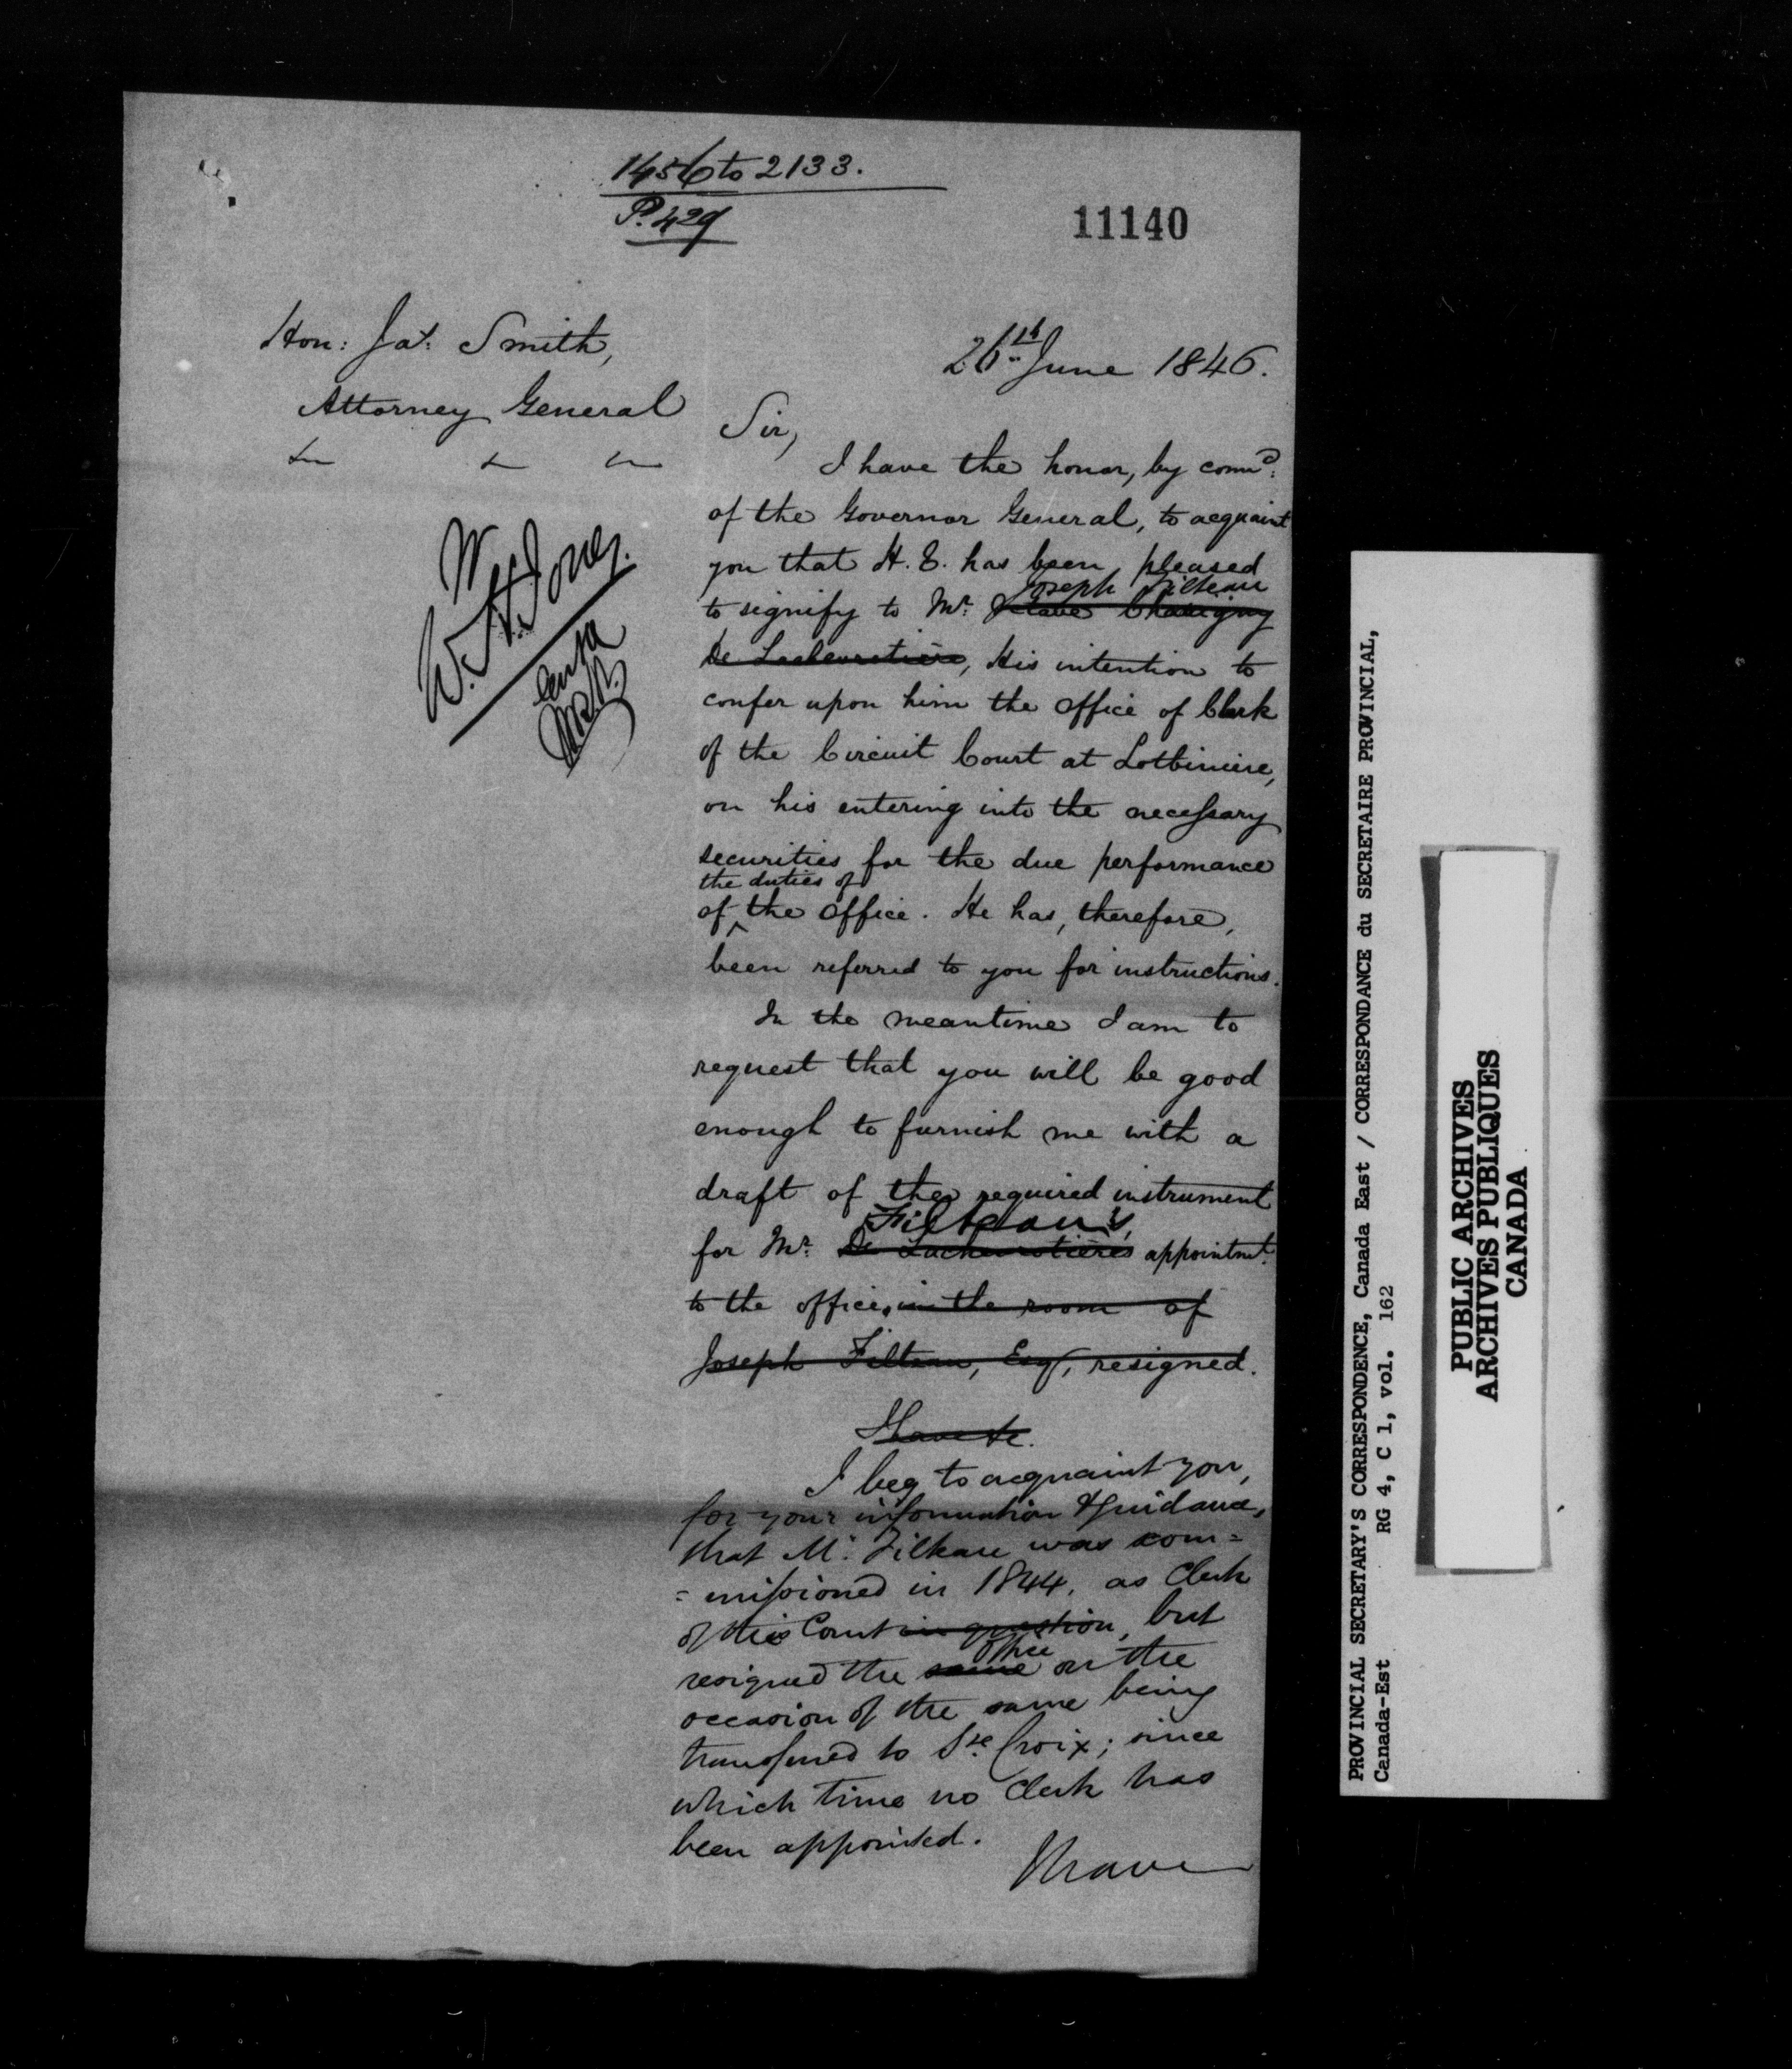 1456 to 2133.
P. 429
11140
Hon: Jas. Smith,
Attorney General
26th June 1846.
Sir,
I have the honor, by comd.
of the Governor General, to acquaint
you that H. E. has been pleased
Joseph Filteau
to signify to Mr. Octave Chavigny
De Lachevrotière, His intention to
confer upon him the Office of Clerk
of the Circuit Court at Lotbiniere,
on his entering into the necessary
securities for the due performance
the duties of
of the Office. He has, therefore,
been referred to you for instructions.
In the meantime I am to
request that you will be good
enough to furnish me with a
draft of the required instrument
Filteau's
for Mr. De Lachevrotière's appointmt.
to the office, in the room of
Joseph Filteau, Esq, resigned.
I have &c.
I beg to acquaint you,
for your information & guidance,
that Mr. Filteau was com=
=missioned in 1844, as Clerk
of this Court in question, but
office
resigned the same on the
occasion of the same being
transferred to Ste. Croix; since
which time no Clerk has
been appointed.
I have
W. H. Jones.
PROVINCIAL SECRETARY'S CORRESPONDENCE, Canada East / CORRESPONDANCE du SECRETAIRE PROVINCIAL,
Canada-Est RG 4, C 1, vol. 162
PUBLIC ARCHIVES
ARCHIVES PUBLIQUES
CANADA